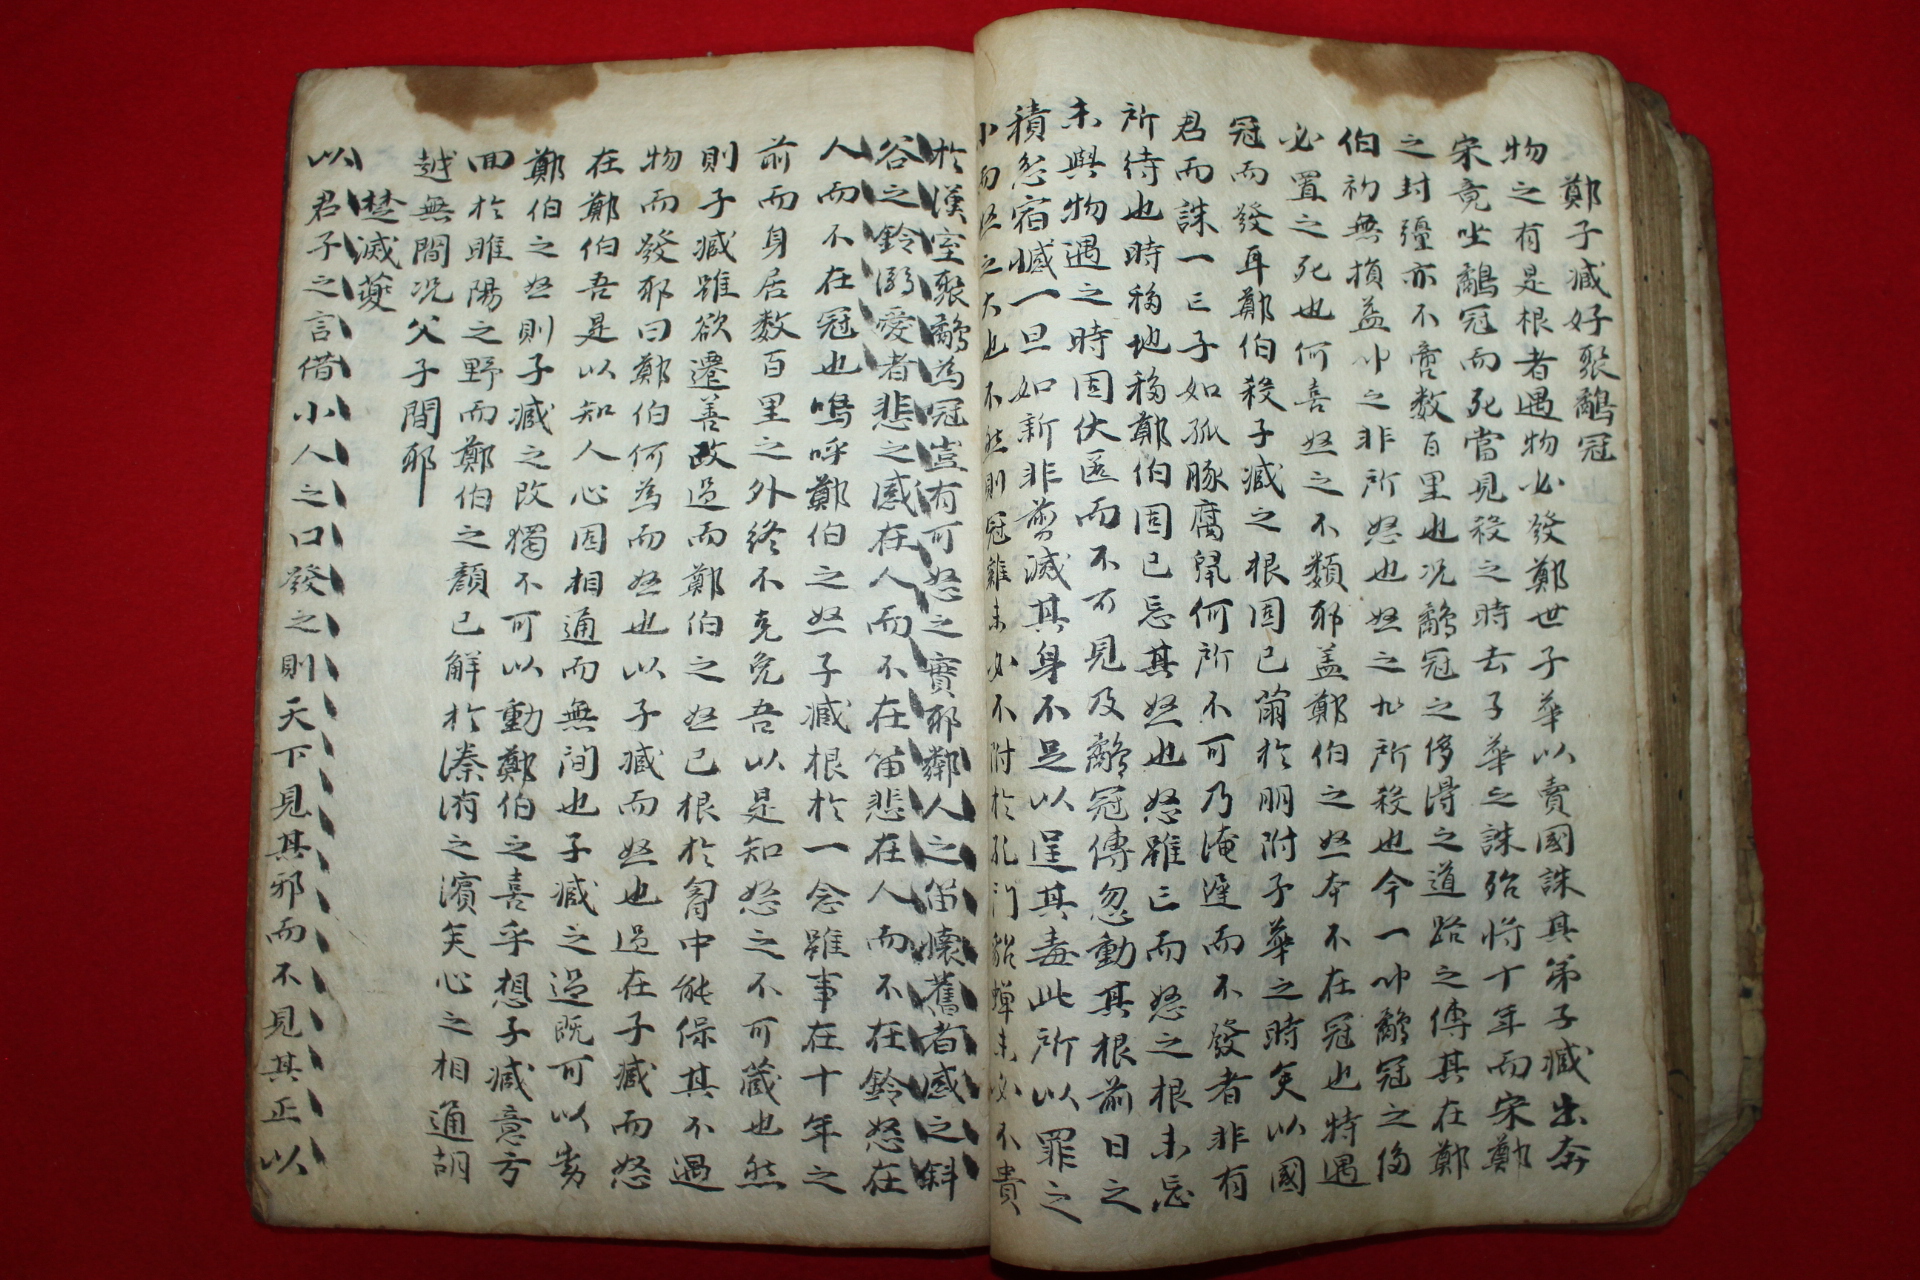 鄭子臧好聚鷸冠
物之有是根者遇物必發鄭世子華以賣國誅其弟子臧出奔
宋竟坐鷸冠而死當見殺之時去子華之誅殆將十年而宋鄭
之封疆亦不啻数百里也况鷸冠之侈得之道路之傳其在鄭
伯初無損益叩之非所怒也怒之非所殺也今一叩鷸冠之侈
必置之死也何喜怒之不類邪盖鄭伯之怒本不在冠也特遇
冠而發耳鄭伯殺子臧之根固已萠於朋附子華之時矣以國
君而誅一亡子如孤豚腐鼠何所不可乃淹遲而不發者非有
所待也時移地移鄭伯固已忘其怒也怒雖亡而怒之根未忘
未與物遇之時固伏匿而不可見及鷸冠傳忽動其根前日之
積忿宿憾一旦如新非剪滅其身不足以逞其毒此所以罪之
小而怒之大也不然則冠雖未必不附於孔門貂蟬未必不貴
於漢室聚鷸為冠豈有可怒之實邪鄰人之笛懷舊者感之斜
谷之鈴溺愛者悲之感在人而不在笛悲在人而不在鈴怒在
人而不在冠也嗚呼鄭伯之怒子臧根於一念雖事在十年之
前而身居数百里之外終不克免吾以是知怒之不可蔵也然
則子臧雖欲遷善改過而鄭伯之怒已根於胷中能保其不遇
物而發邪曰鄭伯何為而怒也以子臧而怒也過在子臧而怒
在鄭伯吾是以知人心固相通而無間也子臧之過既可以劳
鄭伯之怒則子臧之改獨不可以動鄭伯之喜乎想子臧意方
回於睢陽之野而鄭伯之顏已解於溱洧之濱矣心之相通胡
越無間况父子間邪
楚滅夔
以君子之言借小人之口發之則天下見其邪而不見其正以